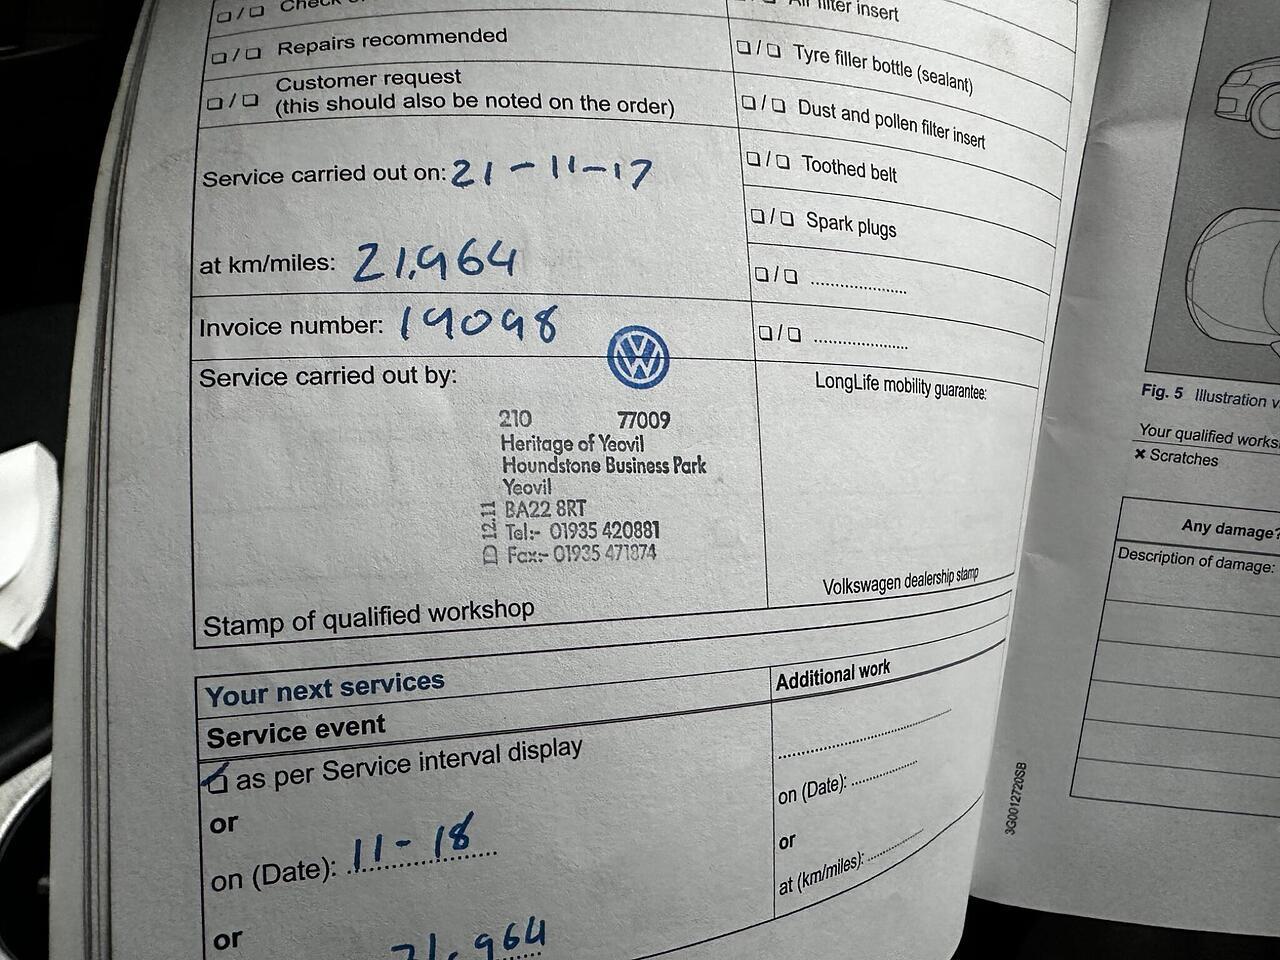 ❏ / ❏ Check
❏ / ❏ Repairs recommended
❏ / ❏ Customer request
(this should also be noted on the order)
Service carried out on: 21-11-17
at km/miles: 21,964
Invoice number: 19098
Service carried out by:
210 77009
Heritage of Yeovil
Houndstone Business Park
Yeovil
BA22 8RT
Tel:- 01935 420881
Fax:- 01935 471874
D 12.11
Stamp of qualified workshop
filter insert
❏ / ❏ Tyre filler bottle (sealant)
❏ / ❏ Dust and pollen filter insert
❏ / ❏ Toothed belt
❏ / ❏ Spark plugs
❏ / ❏ ....................
❏ / ❏ ....................
LongLife mobility guarantee:
Volkswagen dealership stamp
Your next services
Service event
❏ as per Service interval display
or
on (Date): 11-18
or
964
Additional work
....................
on (Date): ..............
or
at (km/miles): ............
3G0012720SB
Fig. 5 Illustration
Your qualified
✖ Scratches
Any damage?
Description of damage: